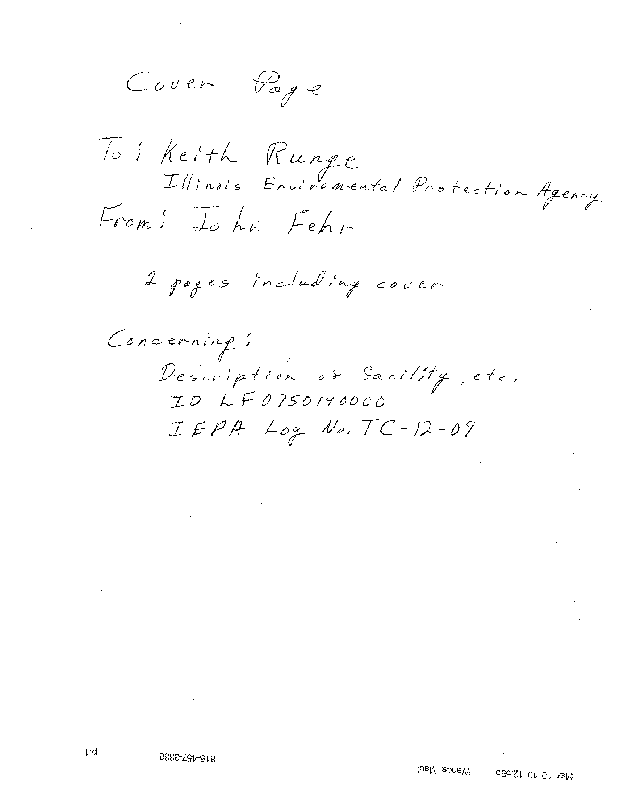 Cover Page
To: Keith Runge
Illinois Enviromental Protection Agency
From: John Fehr
2 pages including cover
Concerning:
Description of facility, etc.
ID LF0750140000
IEPA Log No. TC-12-09
p.1